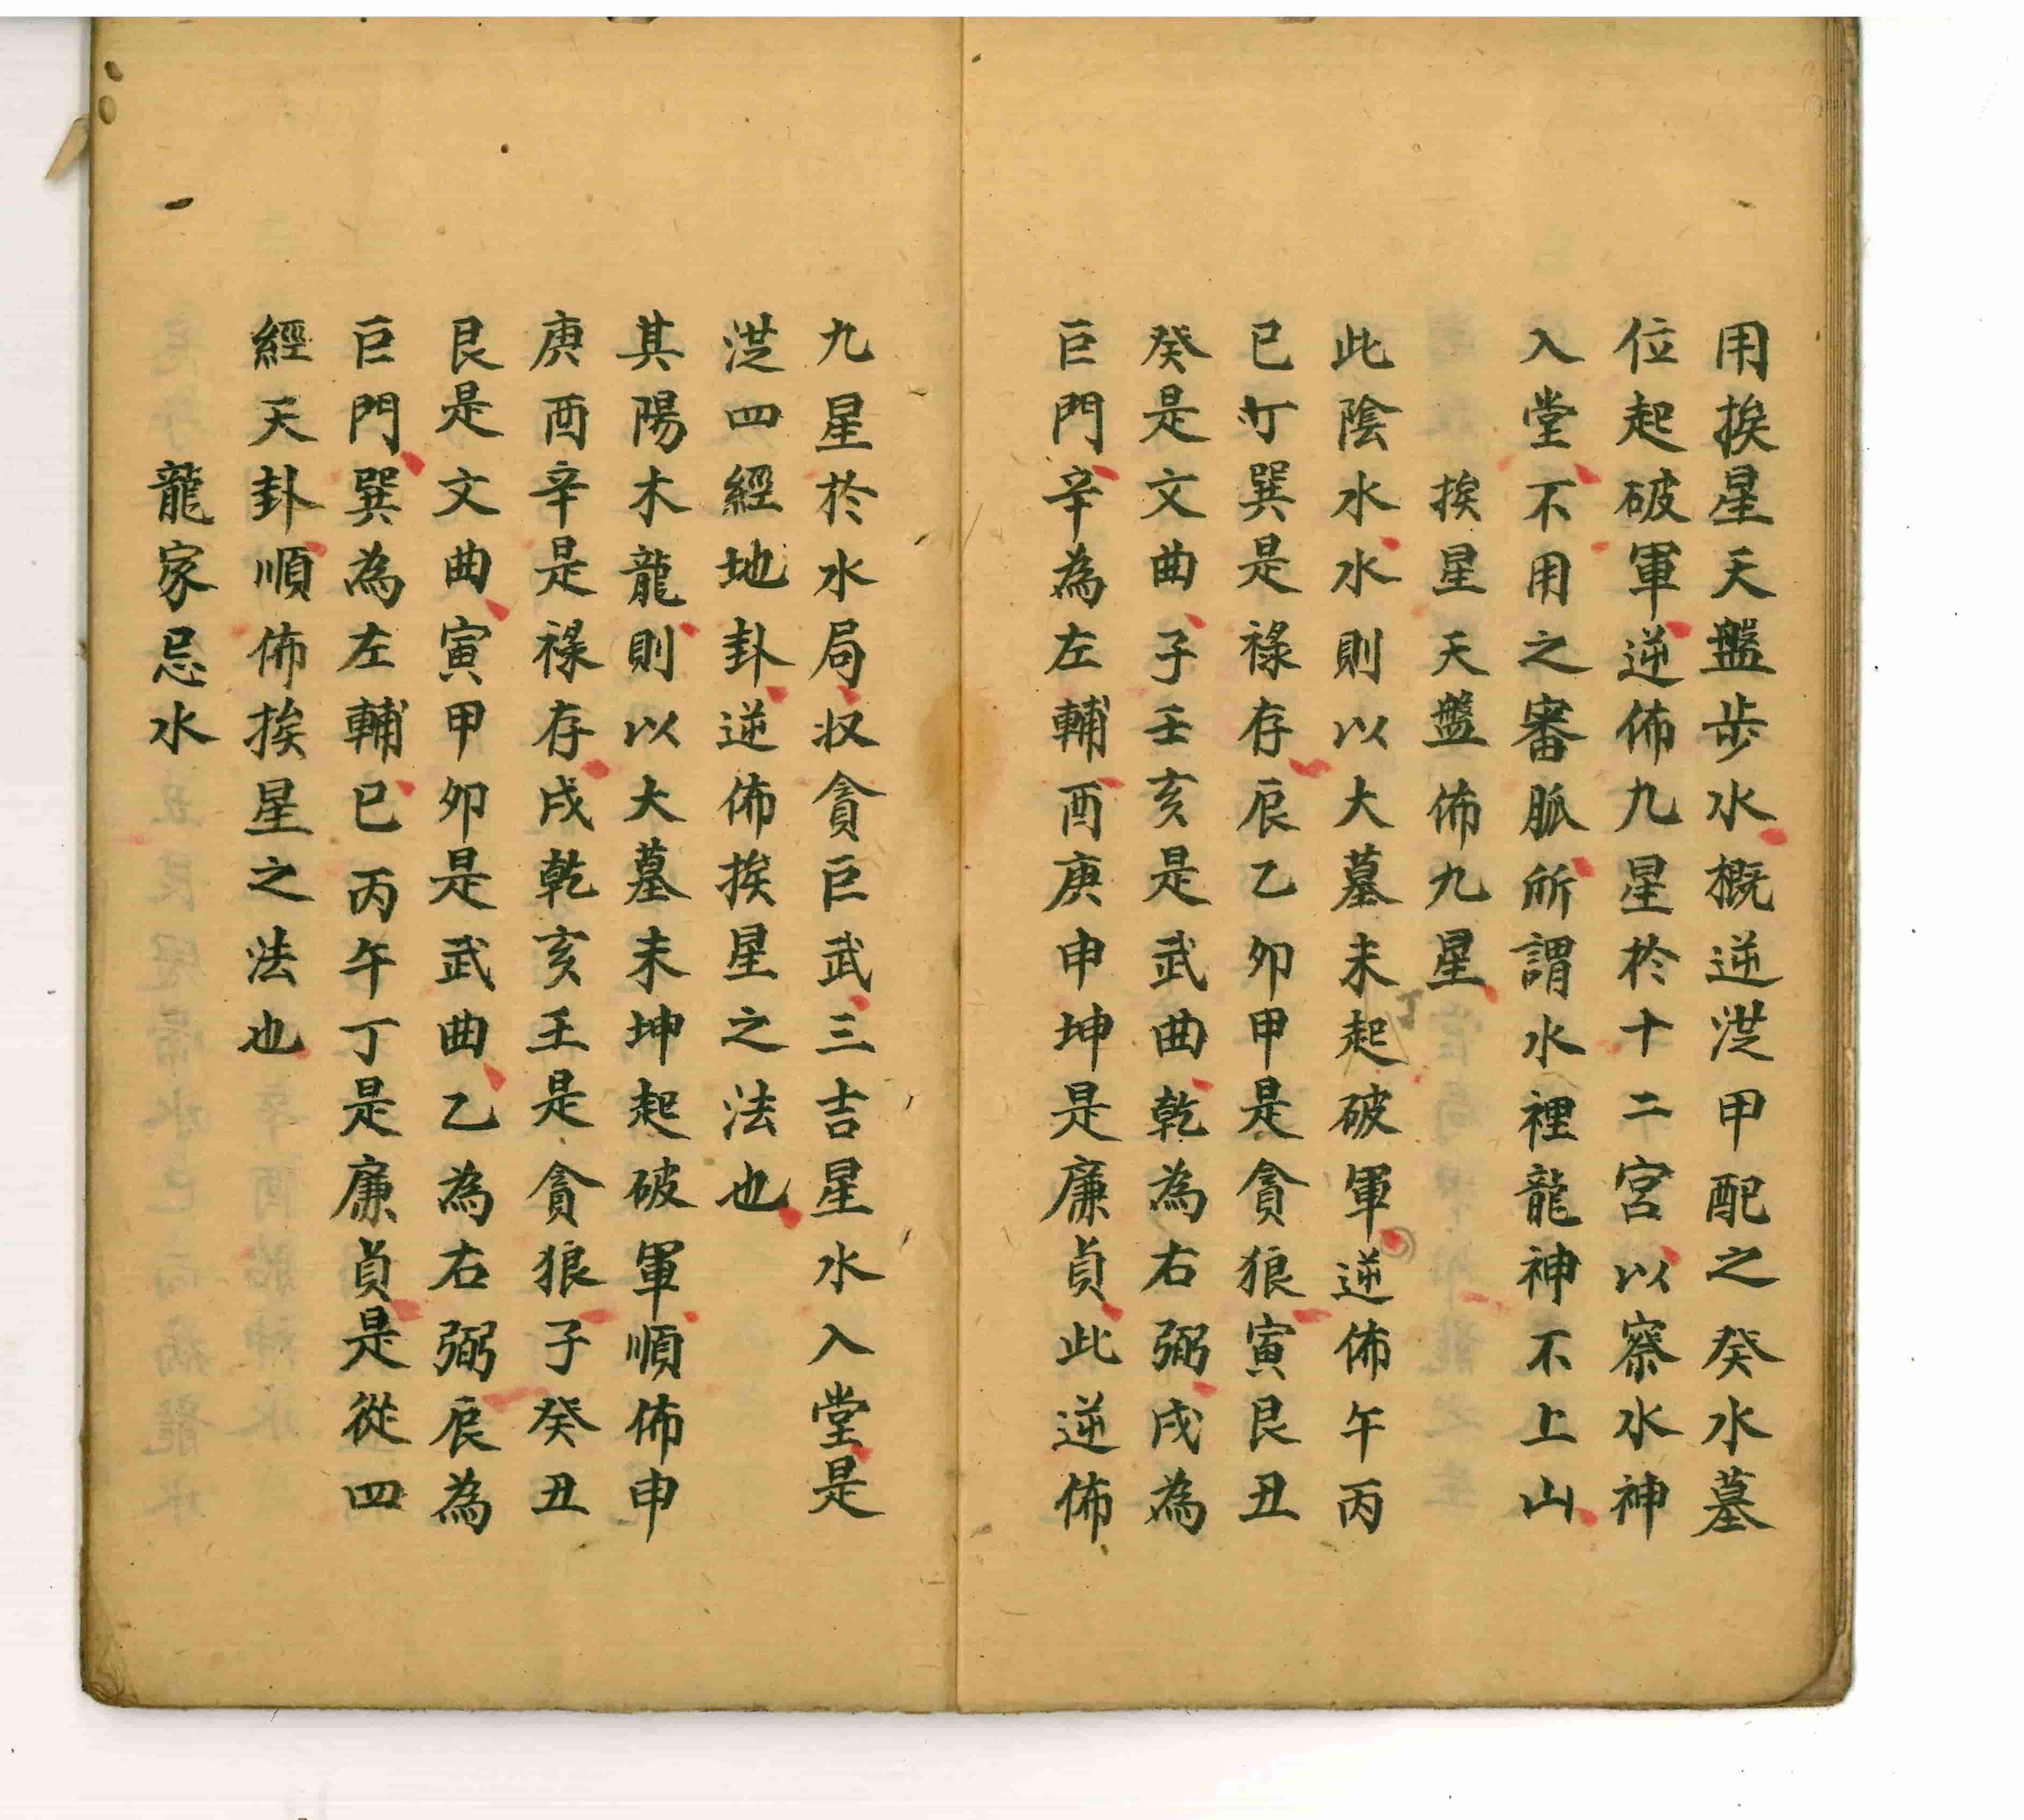 用挨星天盤步水概逆涇甲配之癸水墓
位起破軍逆佈九星於十二宮以察水神
入堂不用之審脈所謂水裡龍神不上山
挨星天盤佈九星
此陰水水則以大墓未起破軍逆佈午丙
巳丁巽是祿存辰乙卯甲是貪狼寅艮丑
癸是文曲子壬亥是武曲乾為右弼戌為
巨門辛為左輔酉庚申坤是廉貞此逆佈
九星於水局収貪巨武三吉星水入堂是
從四經地卦逆佈挨星之法也
其陽木龍則以大墓未坤起破軍順佈申
庚酉辛是祿存戌乾亥壬是貪狼子癸丑
艮是文曲寅甲卯是武曲乙為右弼辰為
巨門巽為左輔巳丙午丁是廉貞是從四
經天卦順佈挨星之法也
龍家忌水